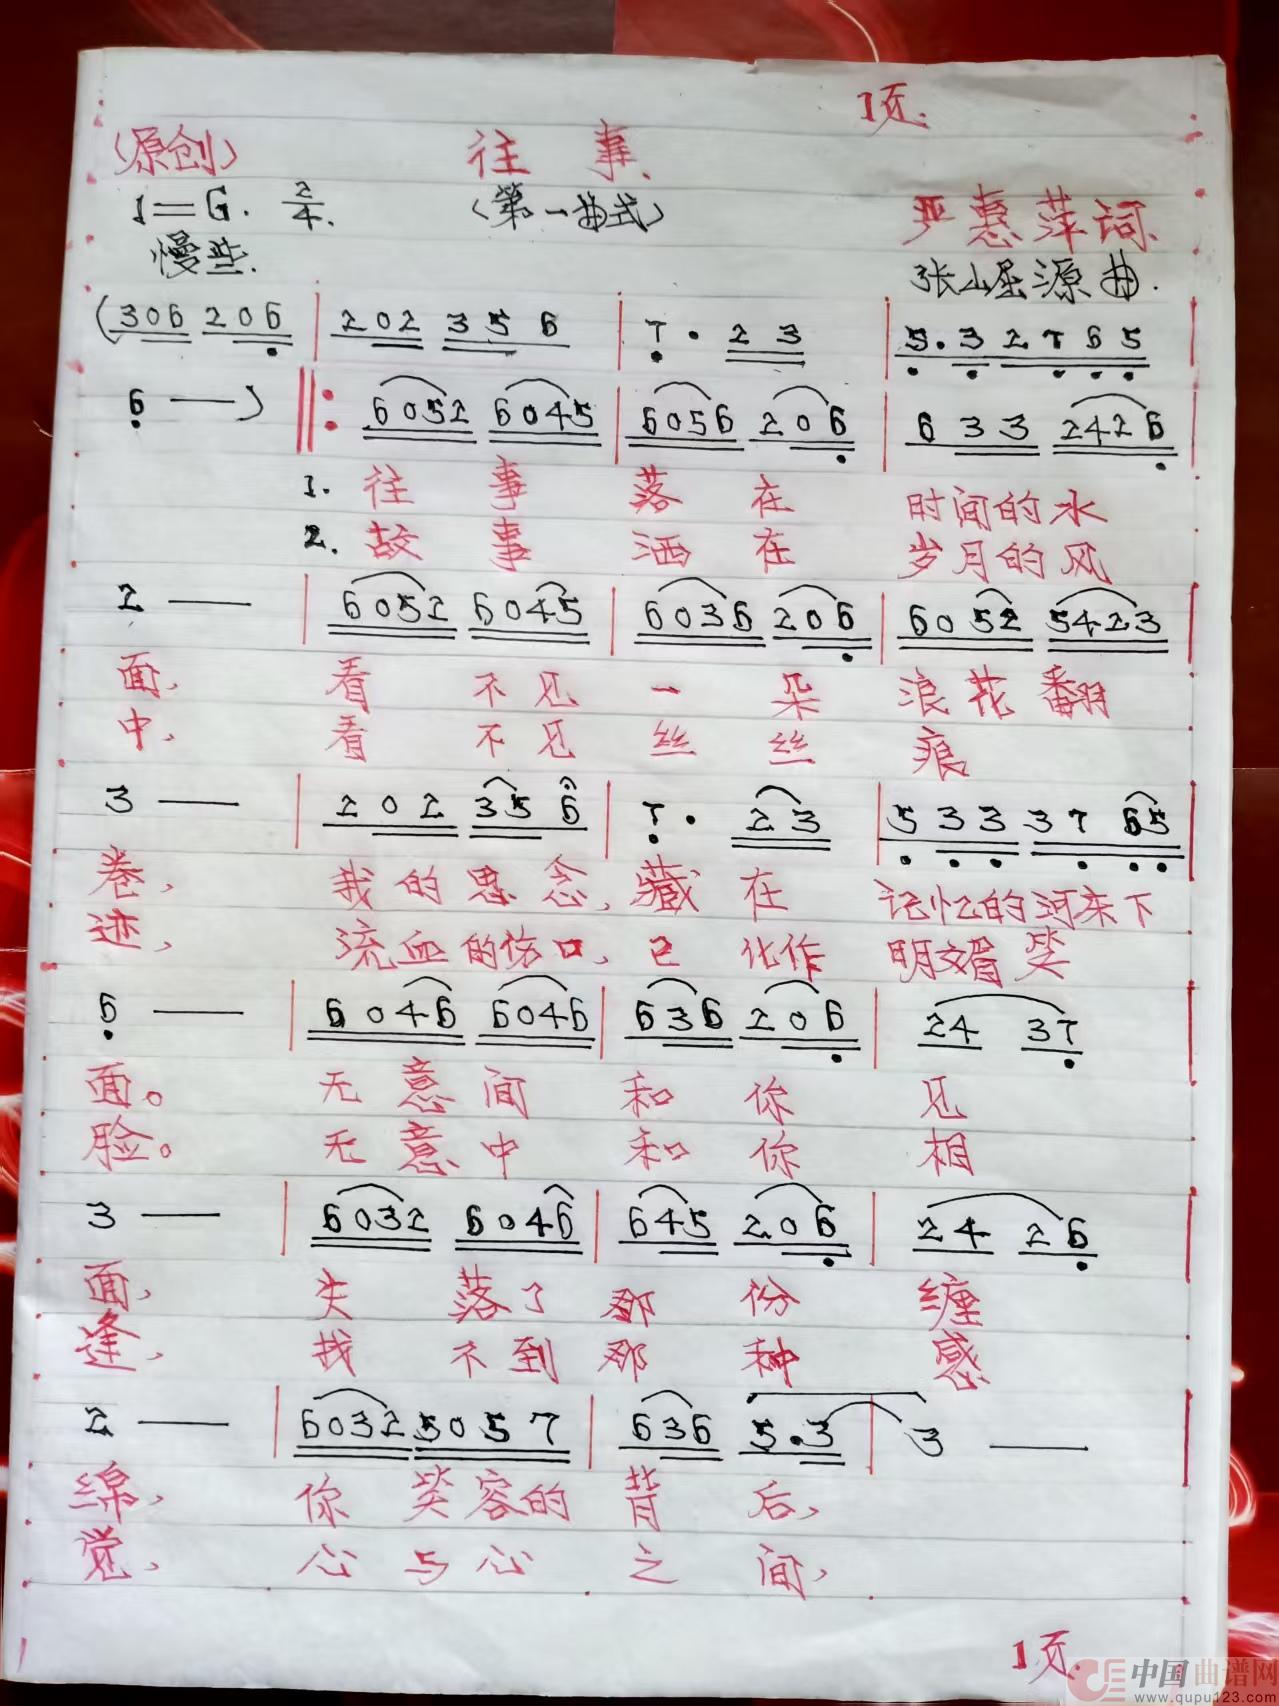 1页.
(原创) 往 事.
1=G. 2/4. (第一曲式) 严惠萍词.
慢些. 张山屋源曲.
(306 206 | 202 356 | 7· 23 | 5·3 2765
6 —) ‖: 6052 6045 | 6056 206 | 633 2426
1. 往 事 落 在 时间的水
2. 故 事 洒 在 岁月的风
2 — | 6052 6045 | 6036 206 | 6052 5423
面, 看 不见 一 朵 浪花翻
中, 看 不见 丝 丝 痕
3 — | 202 356 | 7· 23 | 533 3765
卷, 我的思念, 藏在 记忆的河床下
迹, 流血的伤口, 已化作 明媚笑
6 — | 6046 6046 | 636 206 | 24 37
面。 无意间 和你 见
脸。 无意中 和你 相
3 — | 6032 6046 | 645 206 | 24 26
面, 失 落了 那 份 缠
逢, 找 不到 那 种 感
2 — | 6032 5057 | 636 5·3 | 3 —
绵, 你笑容的 背 后,
觉, 心与心 之 间,
1页.
中国曲谱网
www.qupu123.com